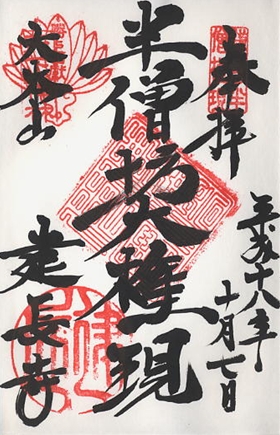 奉拝
平成十八年
十月七日
半僧坊大権現
大本山
建長寺